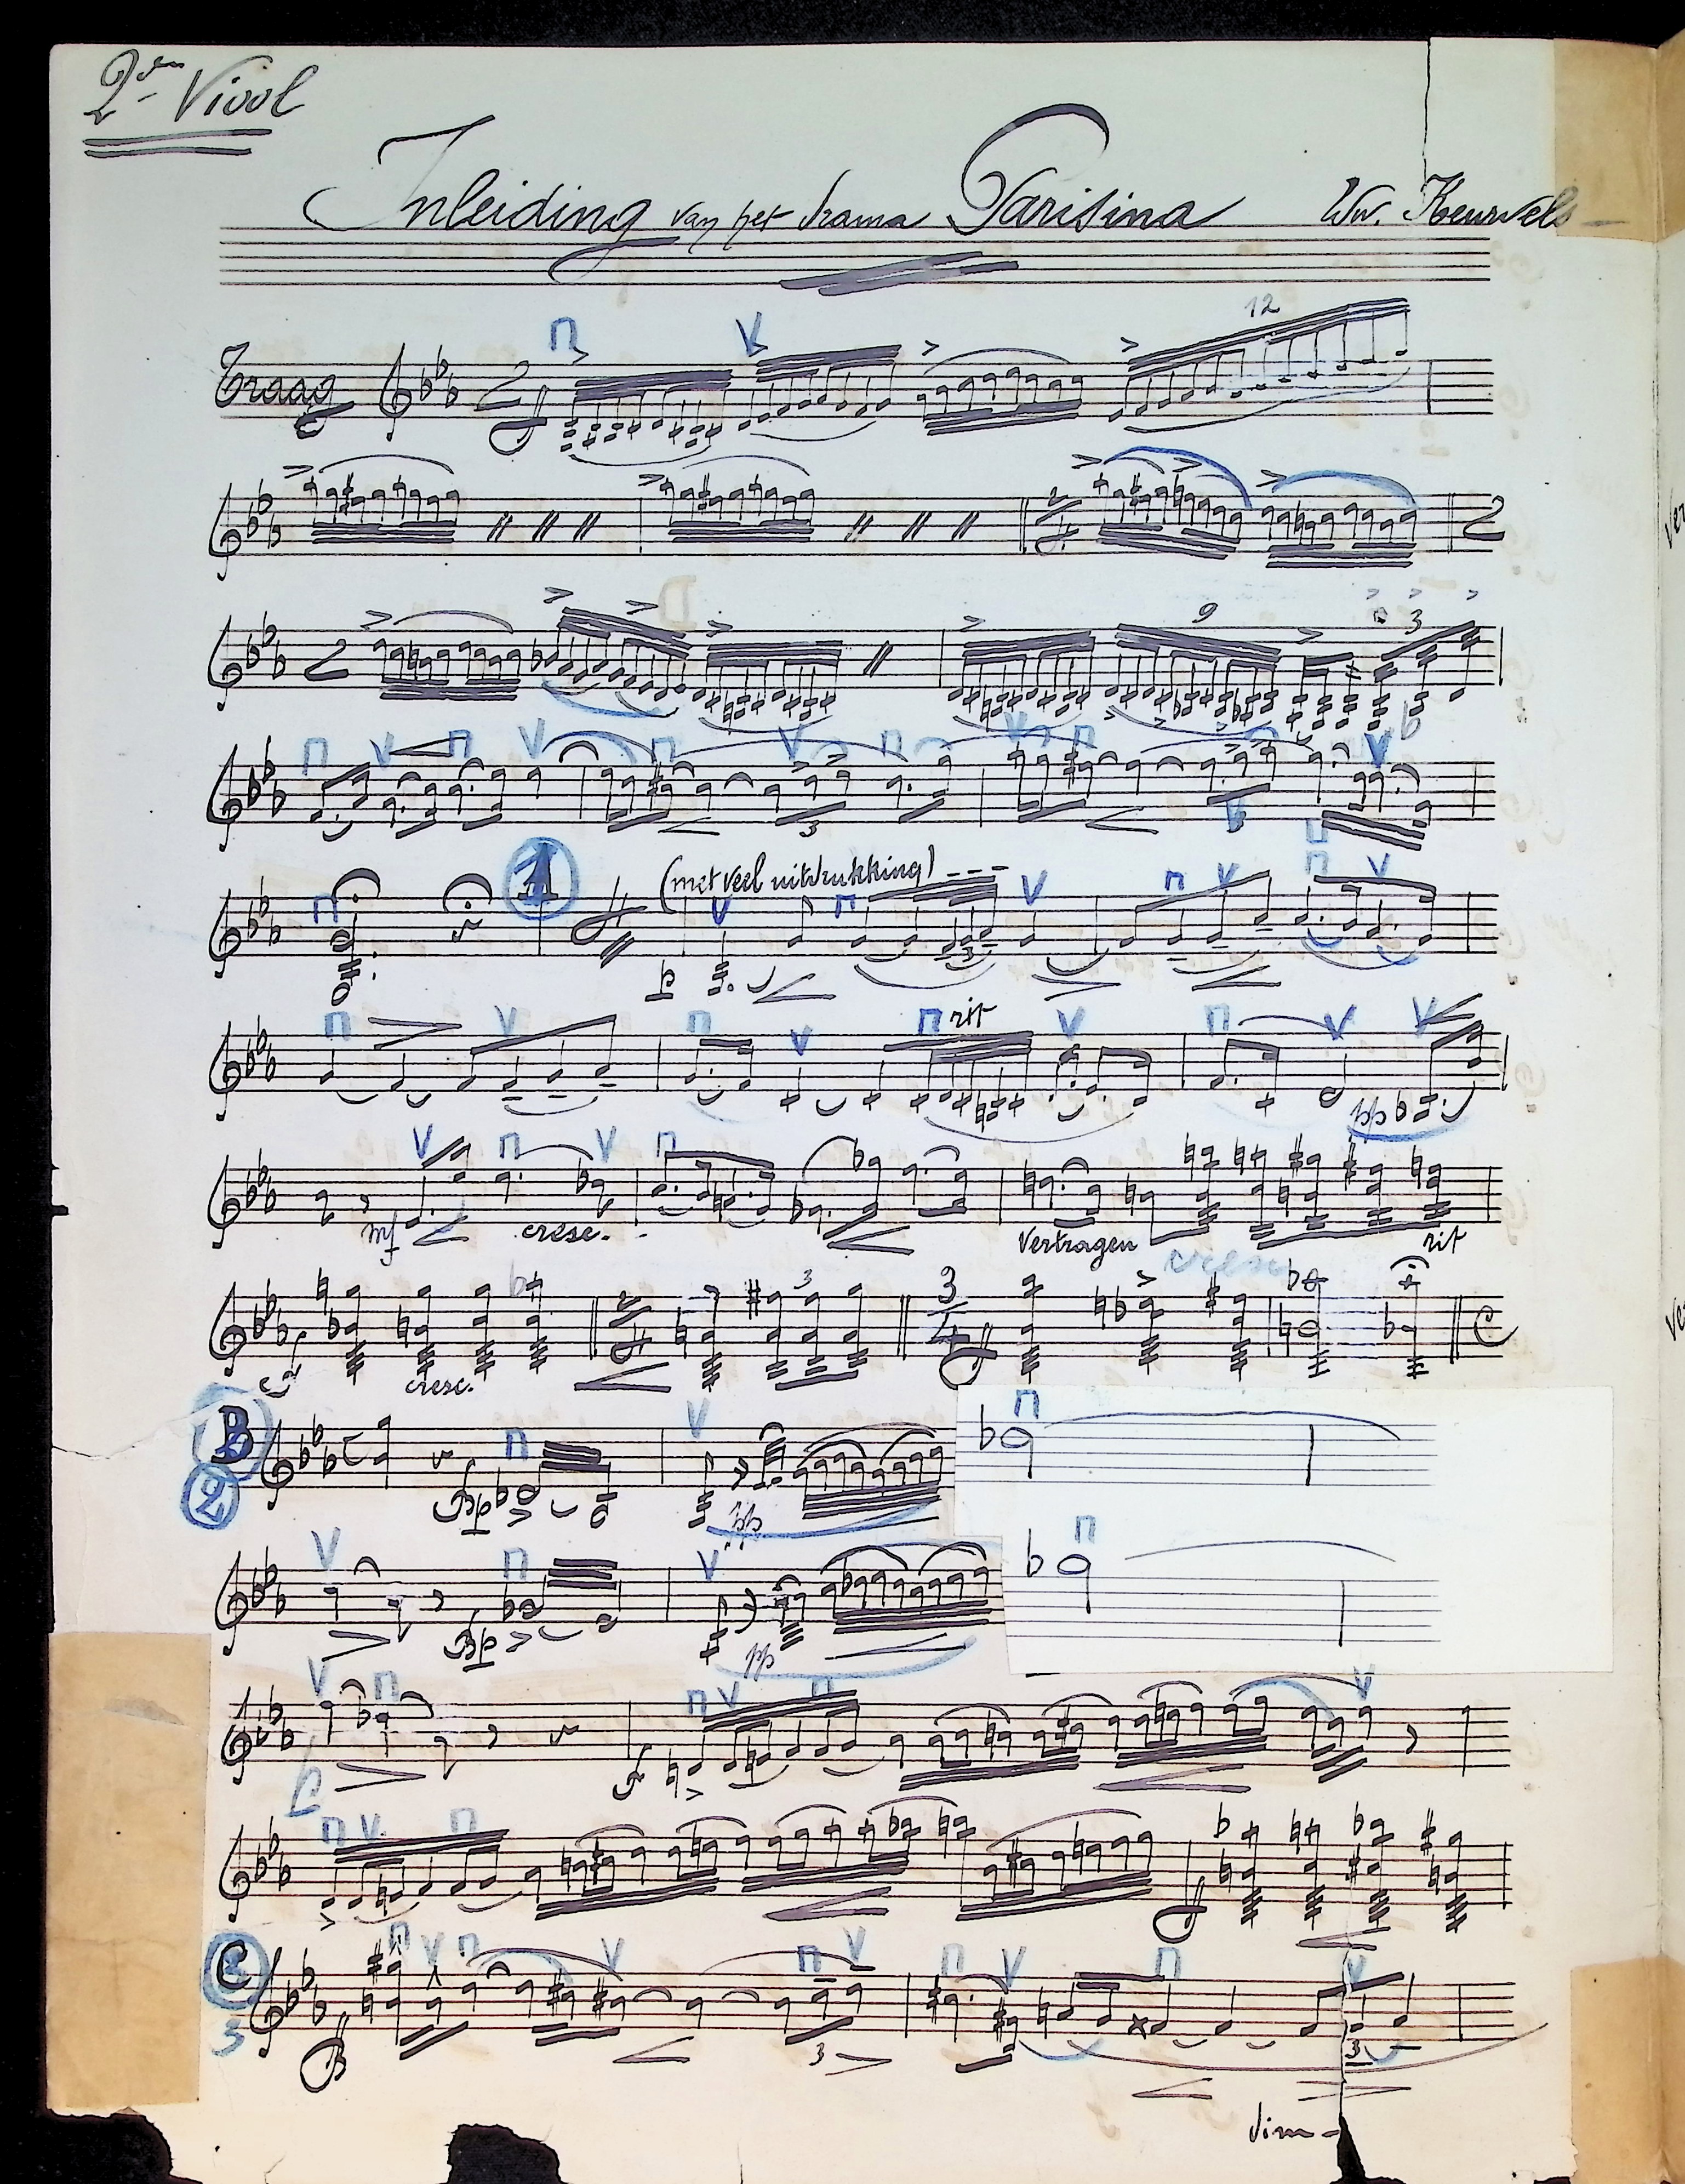 2de Viool
Inleiding van het drama Parisina Ww. Keurvels
12
Traag
9 3
3
1 (met veel uitdrukking)
3
rit
pp
mf cresc. Vertragen rit
cresc
3 3
4
cresc.
B
2 pp
pp
f
C
3
3 3
dim-